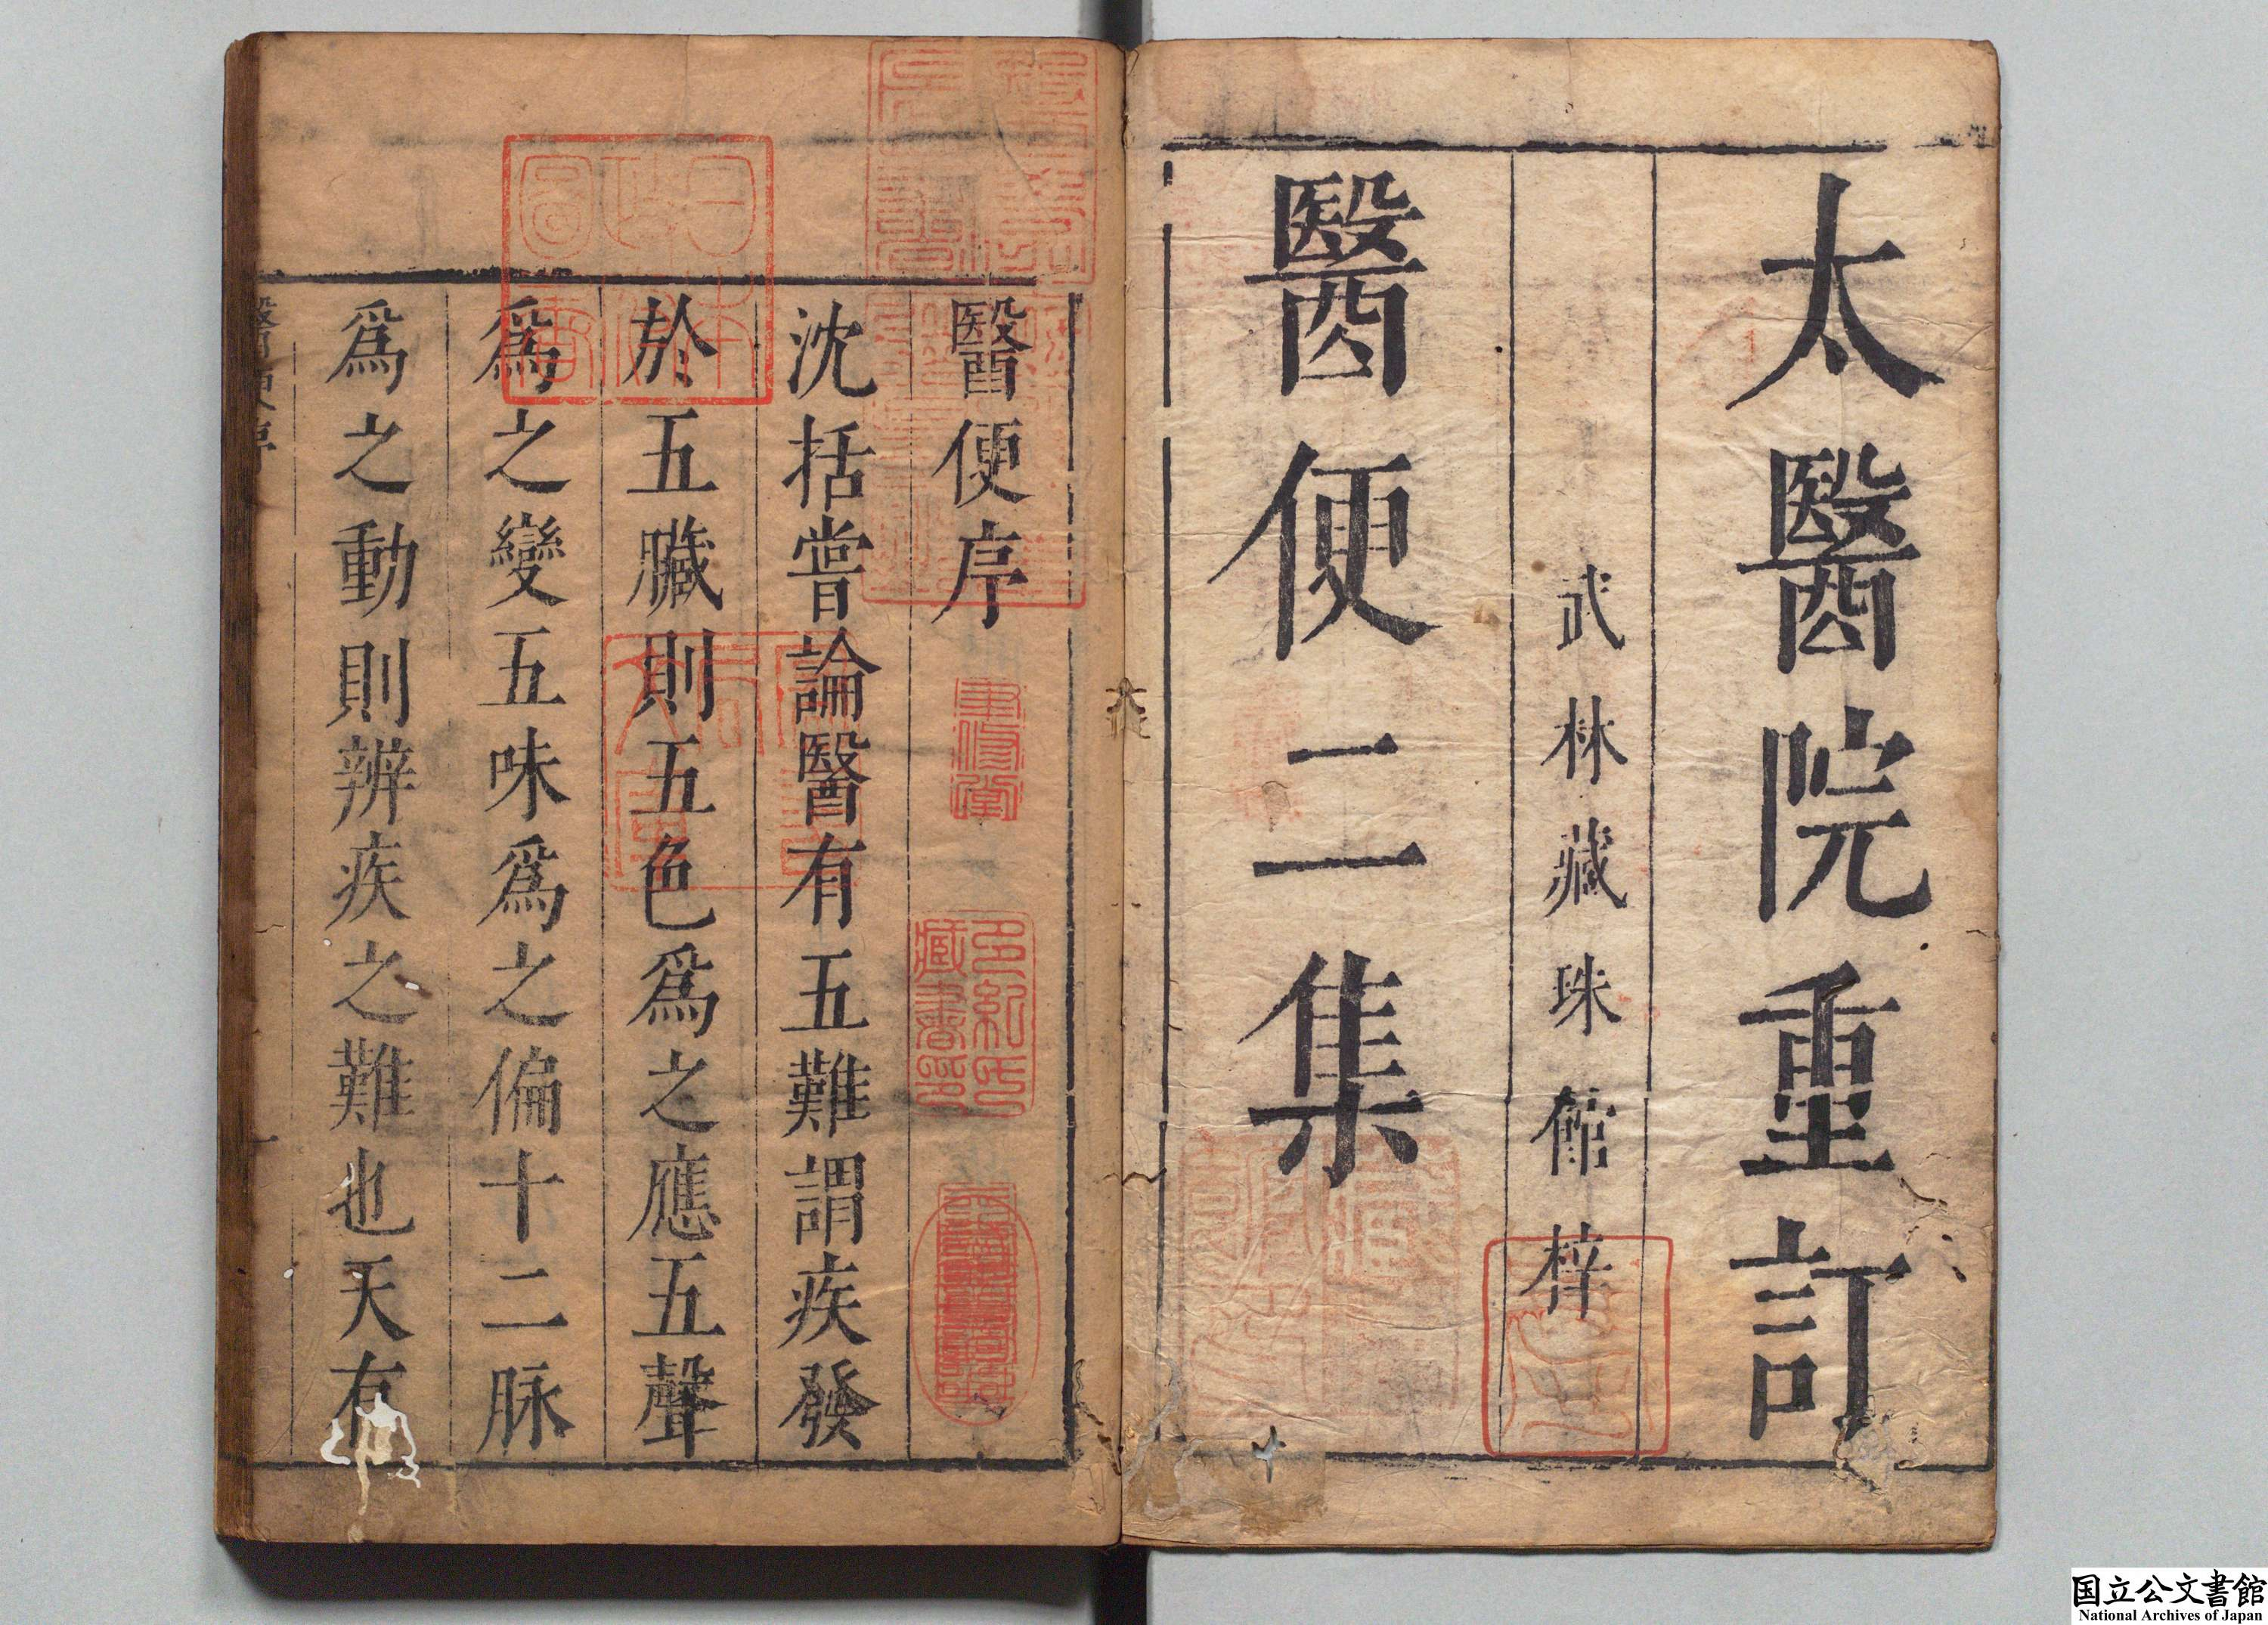 太醫院重訂
武林藏珠館梓
醫便二集
醫便序
沈括嘗論醫有五難謂疾發
於五臟則五色爲之應五聲
爲之變五味爲之偏十二脉
爲之動則辨疾之難也天有
日本
政府
圖書
多紀氏
藏書印
国立公文書館
National Archives of Japan